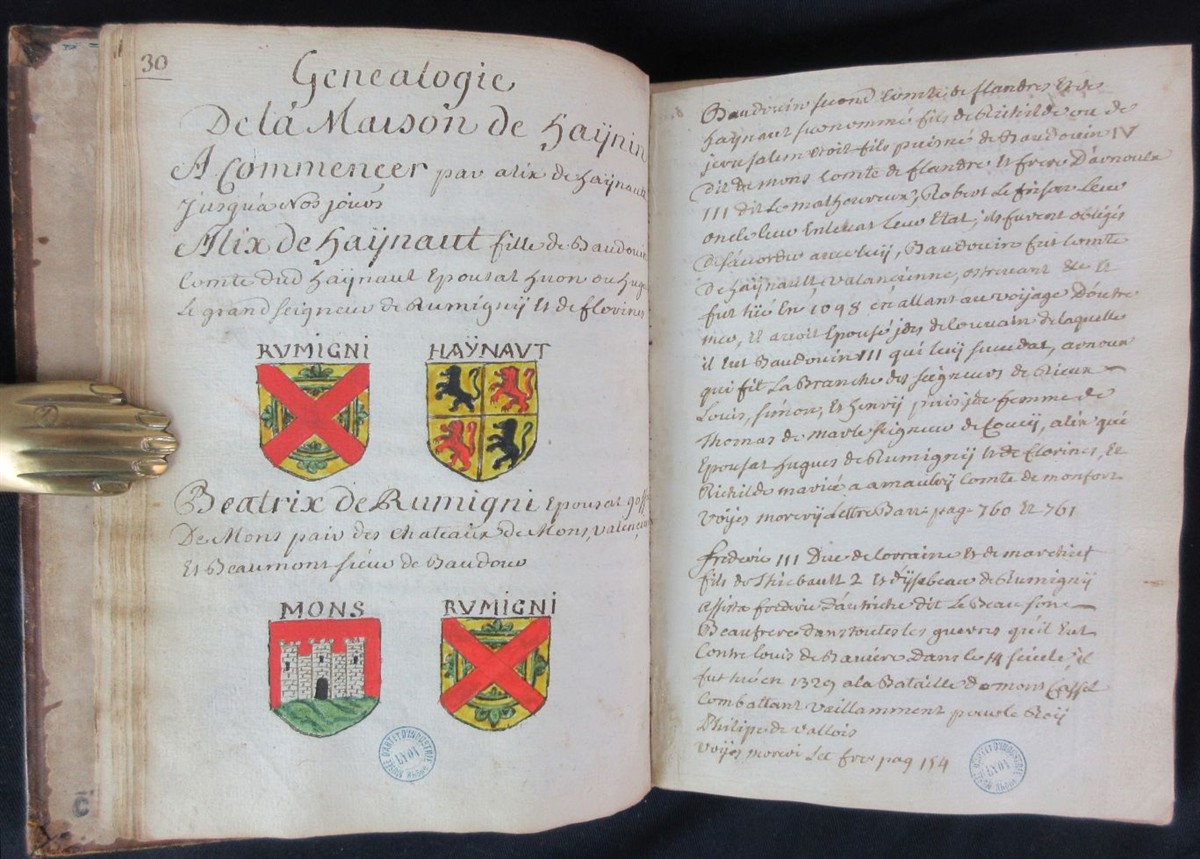 30
Genealogie
De la Maison de Haÿnin
A Commencer par alix de haÿnaut
Jusqu'a nos jours
Alix de Haÿnaut fille de Baudouin
Comte dud haÿnaut Epousat huon ou hug
Le grand seigneur de Rumignÿ Et de florines
RVMIGNI HAŸNAVT
Beatrix de Rumigni Epousat
De Mons pair des chateaux de Mons, Valen
Et Beaumont sieur de Baudour
MONS RVMIGNI
MUSÉE D'ART ET D'INDUSTRIE LYON
Baudouin second Comte de flandres Et de
haÿnaut surnommé fils de Richilde ou de
jerusalem Etoit fils puisné de Baudouin IV
Dit de mons Comte de flandre Et frere D'arnoult
III dit Le malheureux, Robert Le frison Leur
oncle Leur Enlevat Leur Etat, ils furent obligés
De s'acorder avec luÿ, Baudouin fut Comte
De haÿnault, Valencienne, ostrevant &c Et
fut tüé En 1098 en allant au voÿage D'outre
mer, Il avoit Epousé de Louvain de laquelle
il Eut Baudouin III qui luÿ succedat, arnoux
qui fit La Branche des seigneurs de Rieux
Louis, simon, Et henrÿ puis femme de
Thomas de marle seigneur de Coucÿ, alix qui
Epousat hugues de Rumignÿ Et de florines, Et
Richilde mariée a amaulrÿ Comte de monfort
Voÿés morerÿ Lettre Bau pag. 760 Et 761
frederic III Duc de Lorraine Et de marchis
fils de Thiebault 2 Et d'ÿsabeau de Rumignÿ
assista frederic d'autriche dit Le Beau son
Beaufrere dans toutes les guerres qu'il Eut
Contre louis de Baviere Dans le 14 siécle, il
fut tué en 1329 a la Bataille de mons Cassel
Combattant vaillamment pour le Roÿ
Philipe de Vallois
Voÿés moreri Let fre pag 154
MUSÉE D'ART ET D'INDUSTRIE LYON